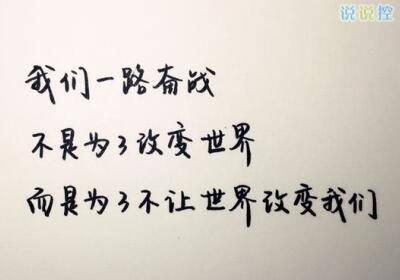 说说控
我们一路奋战
不是为了改变世界
而是为了不让世界改变我们